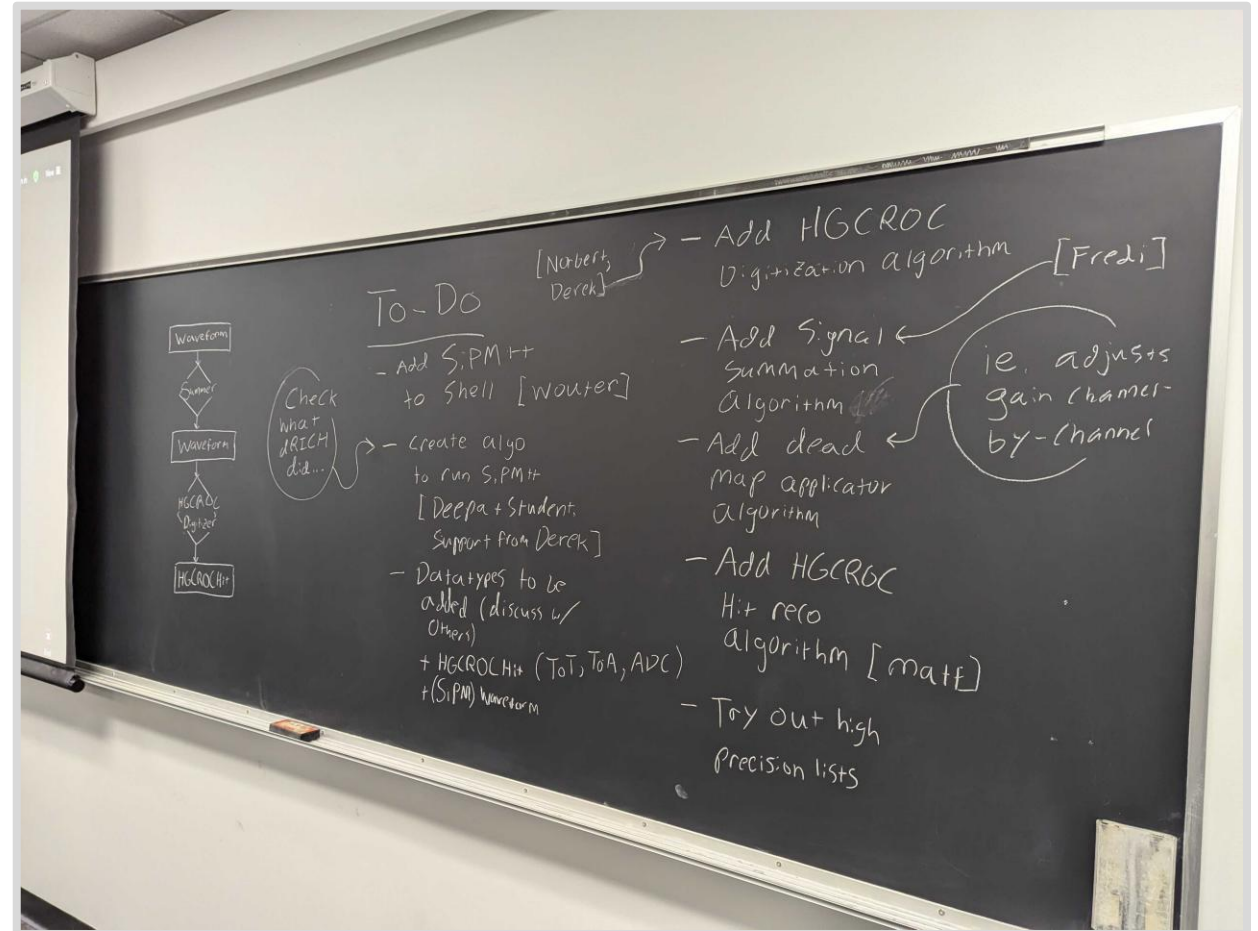 Waveform
Summer
Waveform
HGCROC
Digitizer
HGCROCHit
Check
what
dRICH
did...
To-Do
- Add SiPM++
to Shell [Wouter]
- Create algo
to run SiPM++
[Deepa + Student,
Support from Derek]
- Datatypes to be
added (discuss w/
Others)
+ HGCROCHit (ToT, ToA, ADC)
+ (SiPM) Waveform
[Norbert,
Derek]
- Add HGCROC
Digitization algorithm
[Fredi]
- Add Signal
Summation
algorithm
- Add dead
map applicator
algorithm
ie. adjusts
gain channel-
by-channel
- Add HGCROC
Hit reco
algorithm [Matt]
- Try out high
precision lists